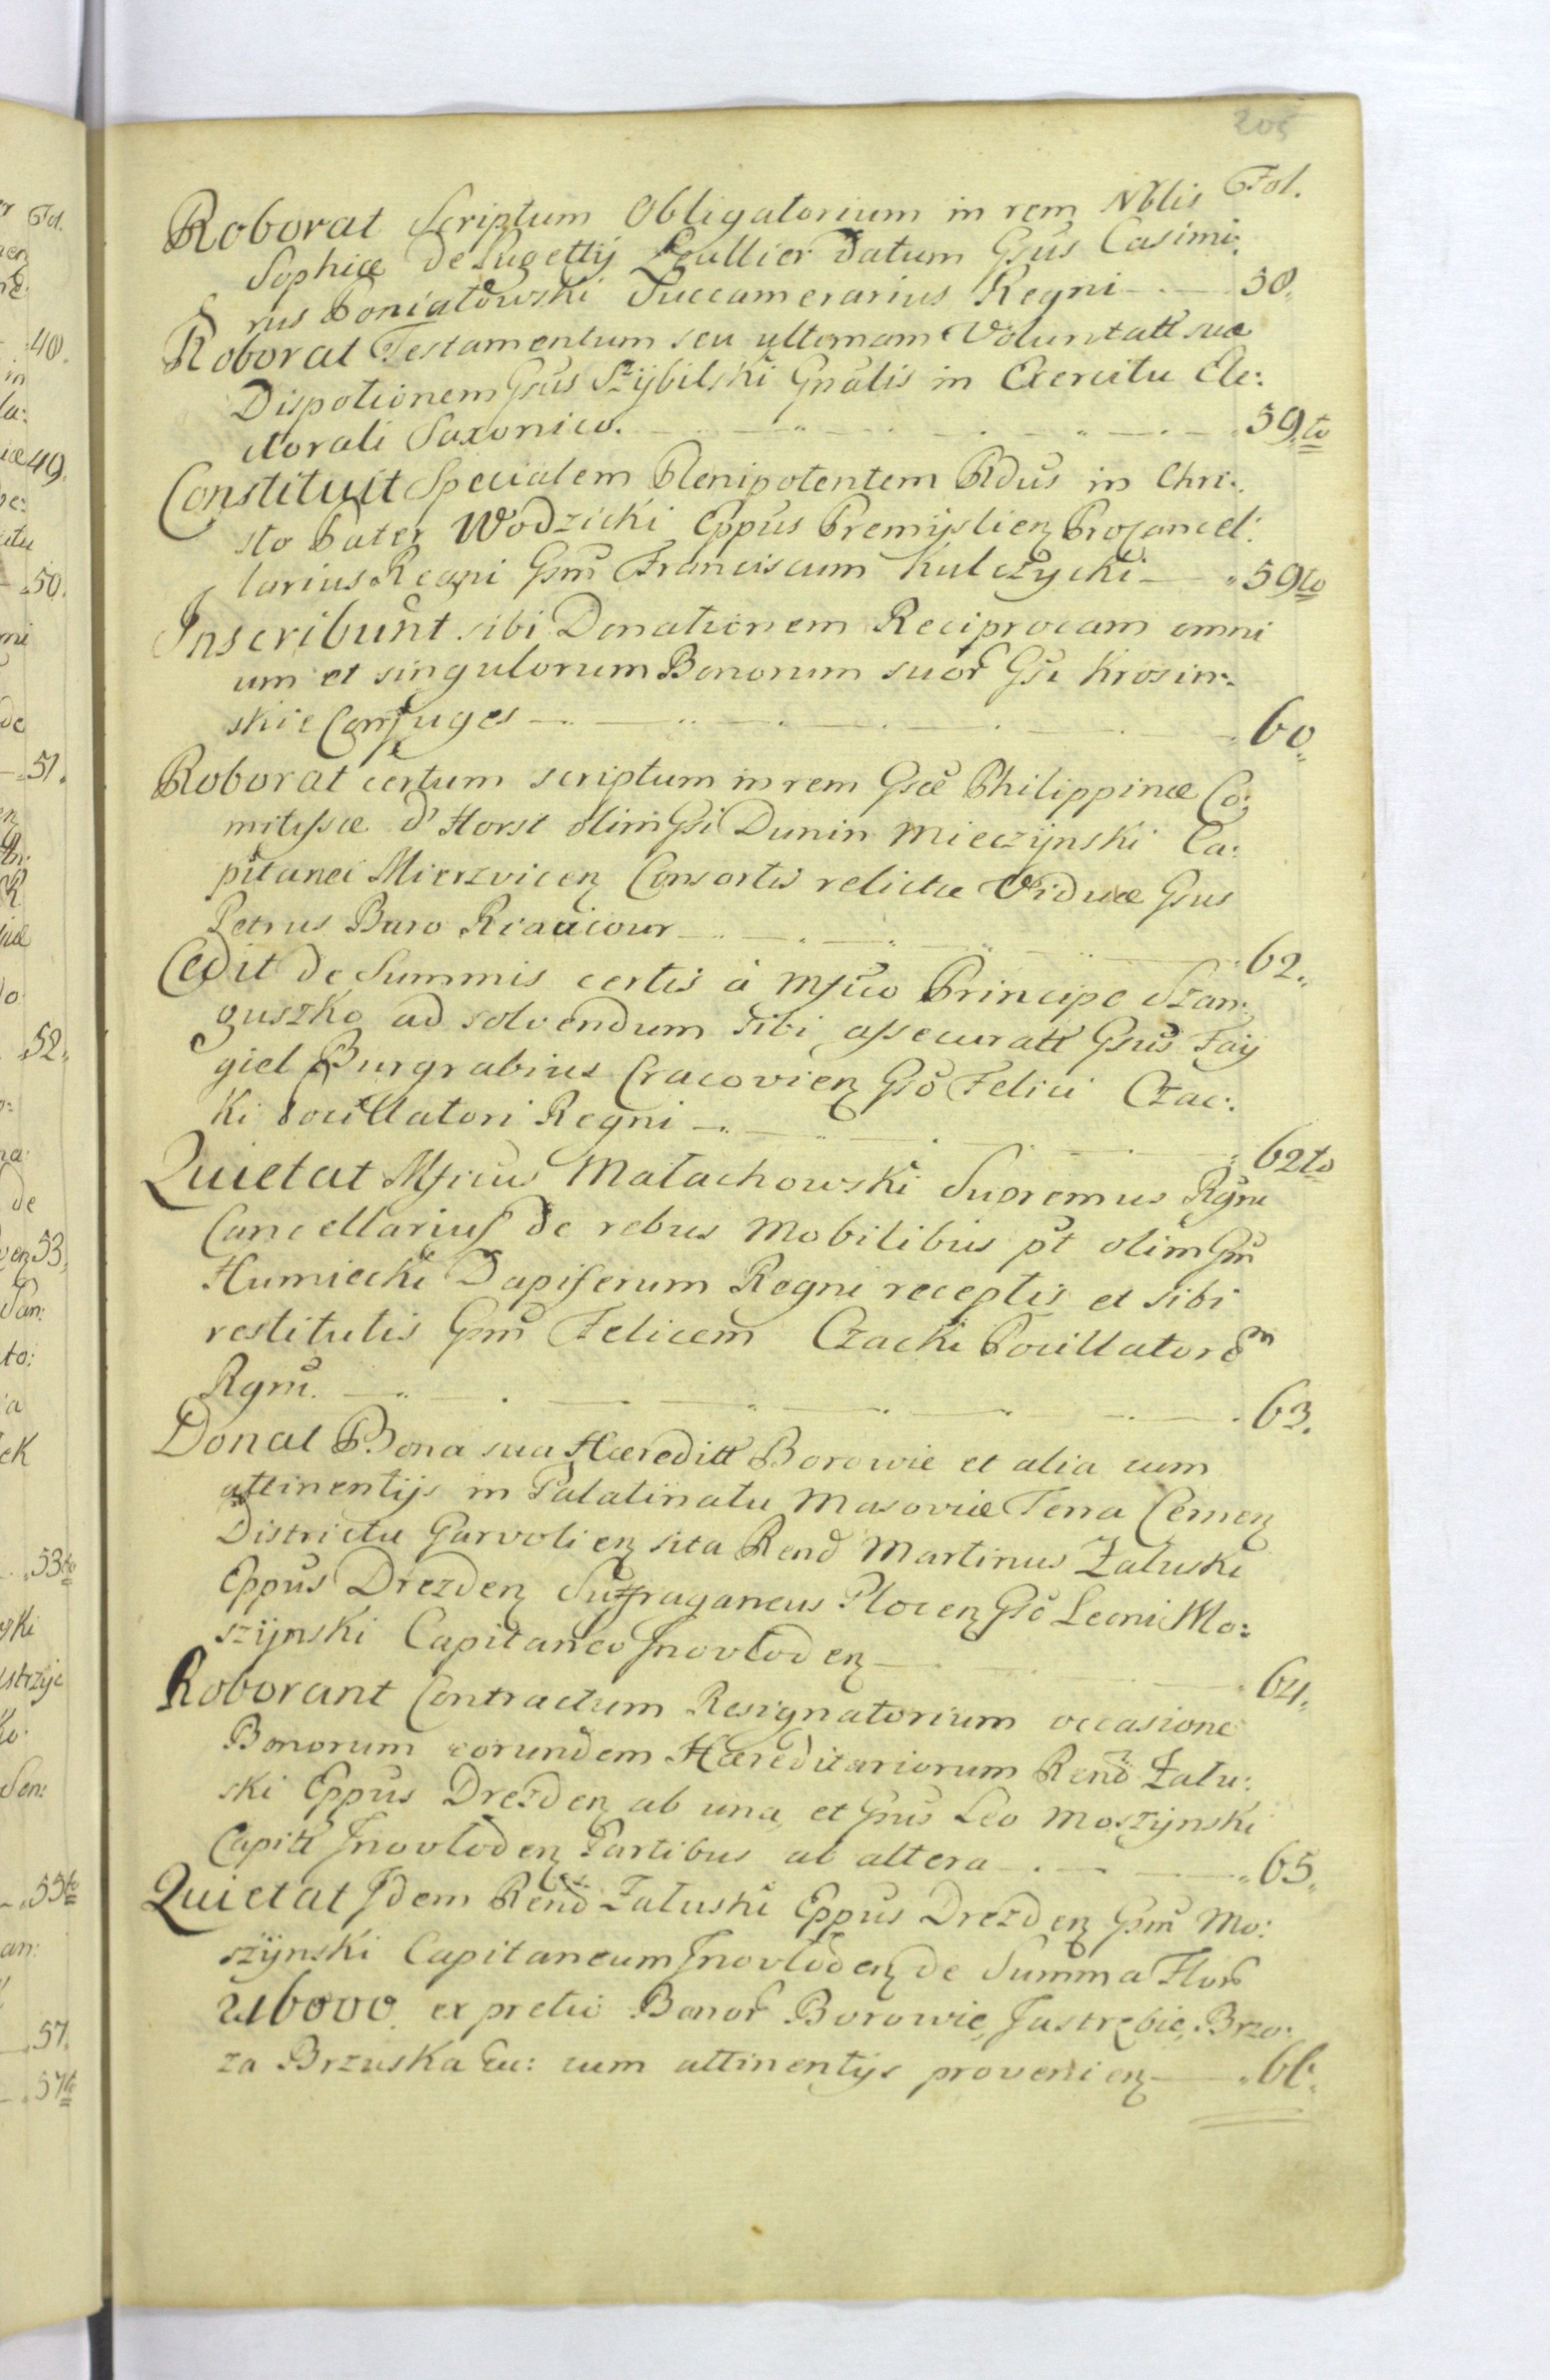 205
Fol.
Roborat Scriptum Obligatorium in rem Nblis
Sophiæ de Pugettij Lgallier datum Gsus Casimi:
rus Poniatowski Succamerarius Regni 58.
Roborat Testamentum seu ultimam Voluntatt suæ
Dispotionem Gsus Szijbilski Gnalis in Exercitu Ele:
ctorali Saxonico. 59.to
Constituit Specialem Plenipotentem Rdus in Chri:
sto Pater Wodzicki Eppus Premijslien Procancel:
larius Regni Gsm Franciscum Kulczycki 59to
Inscribunt sibi Donationem Reciprocam omni
um et singulorum Bonorum suor Gsi Krosin:
skie Conjuges 60.
Roborat certum scriptum in rem Gsæ Philippinæ Co:
mitissæ d'Horst olim Gsi Dunin Mieczijnski Ca:
pitanei Mierzvicen Consortis relictæ Viduæ Gsus
Petrus Baro Riaucour 62.
Cedit de Summis certis à Mfico Principe Szan:
guszko ad solvendum sibi assecuratt Gsus Faij
giel Burgrabius Cracovien Gso Felici Czac:
ki Pocillatori Regni 62to
Quietat Mficus Małachowski Supremus Rgni
Cancellarius de rebus Mobilibus pt olim Gsm
Humiecki Dapiferum Regni receptis et sibi
restitutis Gsm Felicem Czacki Pocillatorem
Rgni. 63.
Donat Bona sua Hæreditt Borowie et alia cum
attinentijs in Palatinatu Masoviæ Terra Cernen
Districtu Garvolien sita Rend Martinus Załuski
Eppus Drezden Suffraganeus Plocen Gso Leoni Mo:
szijnski Capitaneo Jnovłoden 64.
Roborant Contractum Resignatorium occasione
Bonorum eorundem Hæreditariorum Rend Zału:
ski Eppus Drezden ab una, et Gsus Leo Moszijnski
Capitt Jnovłoden Partibus ab altera 65.
Quietat Jdem Rend Załuski Eppus Drezden Gsm Mo:
szijnski Capitaneum Jnovłoden de Summa Flor
216000. ex pretio Bonor Borowie, Jastrzębie, Brzo:
za Brzuska Etc: cum attinentijs provenien 66.